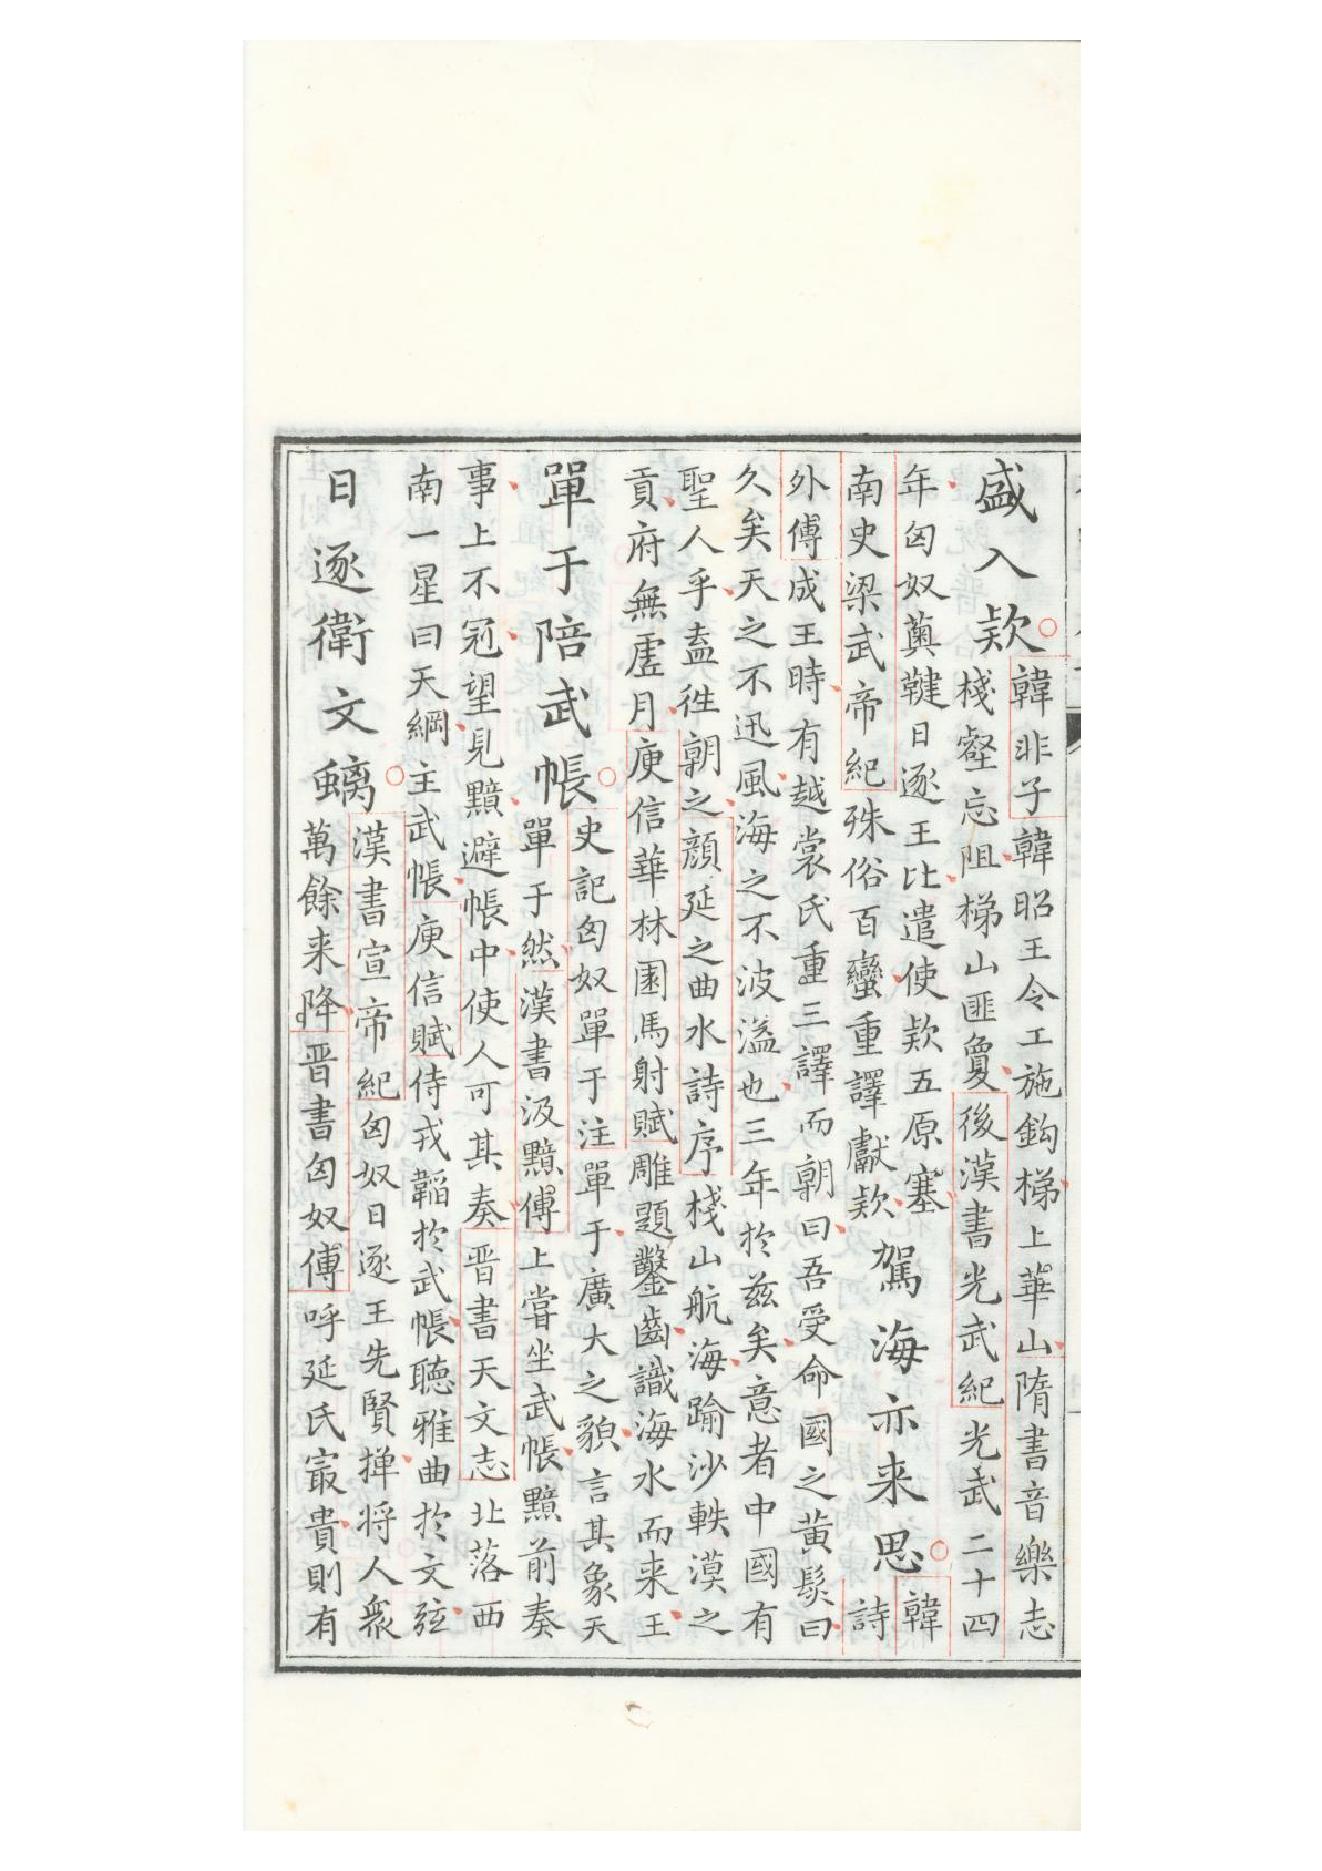 盛入欵
韓非子韓昭王令工施鈎梯上華山隋書音樂志
棧壑忘阻梯山匪夐後漢書光武紀光武二十四
年匈奴薁鞬日逐王比遣使欵五原塞
南史梁武帝紀殊俗百蠻重譯獻欵
駕海亦来思
韓
詩
外傅成王時有越裳氏重三譯而朝曰吾受命國之黄髮曰
久矣天之不迅風海之不波溢也三年於兹矣意者中國有
聖人乎盍徃朝之顔延之曲水詩序棧山航海踰沙軼漠之
貢府無虗月庾信華林園馬射賦雕題鑿齒識海水而来王
單于陪武帳
史記匈奴單于注單于廣大之貌言其象天
單于然漢書汲黯傅上嘗坐武帳黯前奏
事上不冠望見黯避帳中使人可其奏晋書天文志北落西
南一星曰天綱主武帳庾信賦侍戎韜於武帳聴雅曲於文弦
日逐衛文螭
漢書宣帝紀匈奴日逐王先賢撣将人衆
萬餘来降晋書匈奴傅呼延氏㝡貴則有